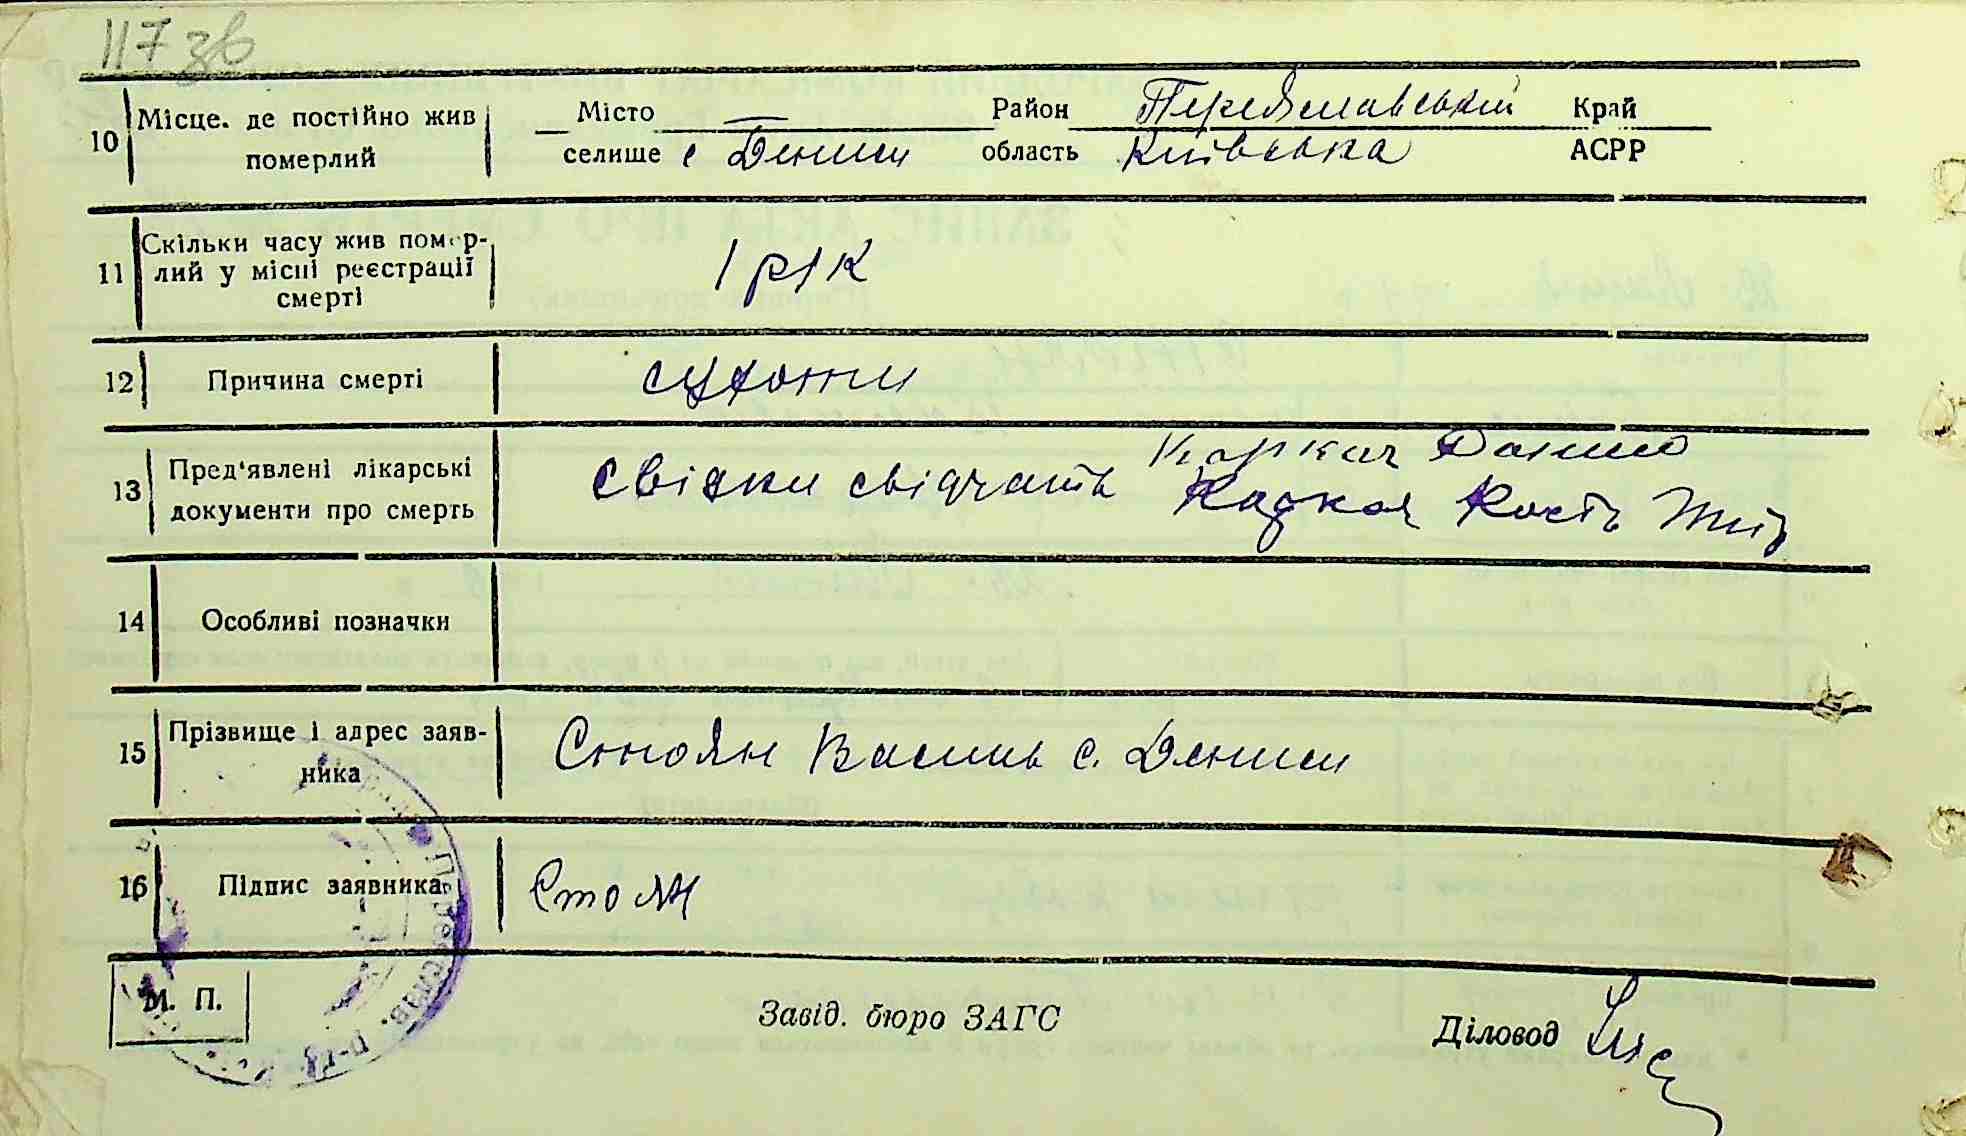 117 зв
10 Місце. де постійно жив померлий
Місто — Район Переяславський Край
селище с Дениси область Київська АСРР
11 Скільки часу жив помер-
лий у місці реєстрації
смерті
1 рік
12 Причина смерті
сухоти
13 Пред'явлені лікарські
документи про смерть
Каркач Данило
свідки свідчать Кость
14 Особливі позначки
15 Прізвище і адрес заяв-
ника
Стоян Василь с. Дениси
16 Підпис заявника
Стоян
М. П.
Завід. бюро ЗАГС
Діловод